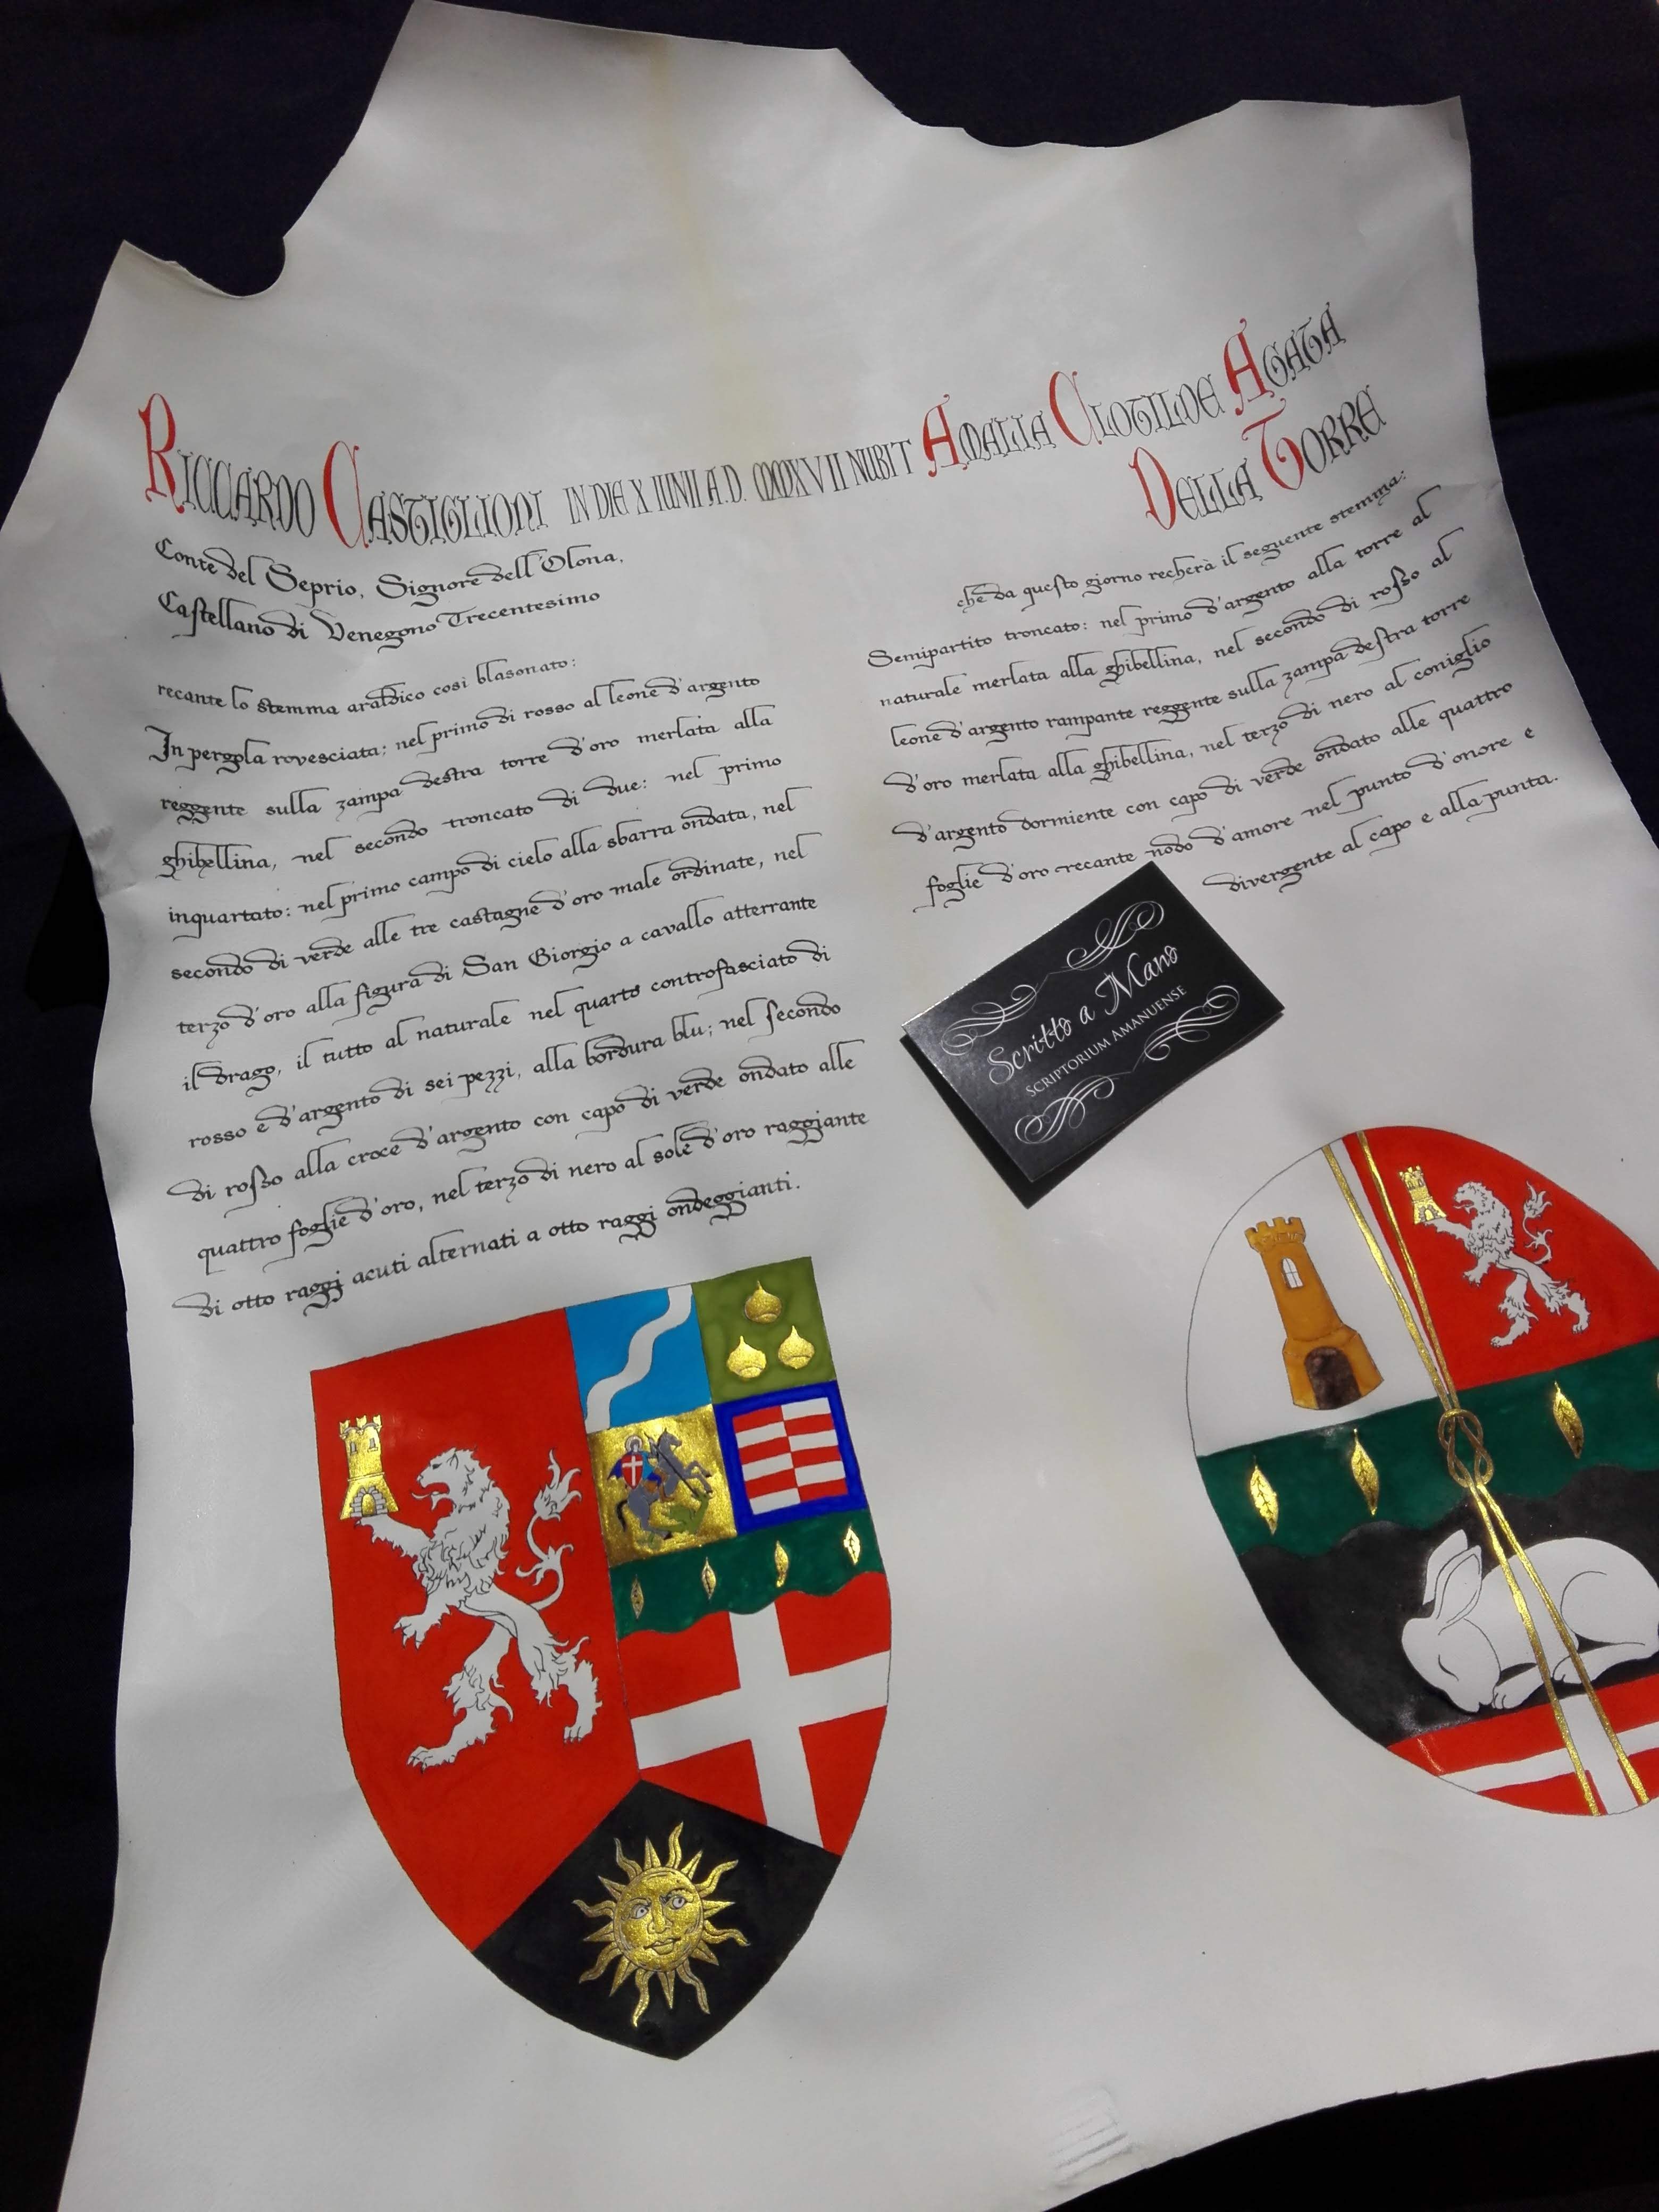 RICCARDO CASTIGLIONI IN DIE X IUNII A.D. MMXVII NUBIT AMALIA CLOTILDE AGATA
DELLA TORRE
Conte del Seprio, Signore dell'Olona,
Castellano di Venegono Trecentesimo
recante lo stemma araldico così blasonato:
In pergola rovesciata: nel primo di rosso al leone d'argento
reggente sulla zampa destra torre d'oro merlata alla
ghibellina, nel secondo troncato di due: nel primo
inquartato: nel primo campo di cielo alla sbarra ondata, nel
secondo di verde alle tre castagne d'oro male ordinate, nel
terzo d'oro alla figura di San Giorgio a cavallo atterrante
il drago, il tutto al naturale nel quarto controfasciato di
rosso e d'argento di sei pezzi, alla bordura blu; nel secondo
di rosso alla croce d'argento con capo di verde ondato alle
quattro foglie d'oro, nel terzo di nero al sole d'oro raggiante
di otto raggi acuti alternati a otto raggi ondeggianti.
che da questo giorno recherà il seguente stemma:
Semipartito troncato: nel primo d'argento alla torre al
naturale merlata alla ghibellina, nel secondo di rosso al
leone d'argento rampante reggente sulla zampa destra torre
d'oro merlata alla ghibellina, nel terzo di nero al coniglio
d'argento dormiente con capo di verde ondato alle quattro
foglie d'oro recante nodo d'amore nel punto d'onore e
divergente al capo e alla punta.
Scritto a Mano
SCRIPTORIUM AMANUENSE